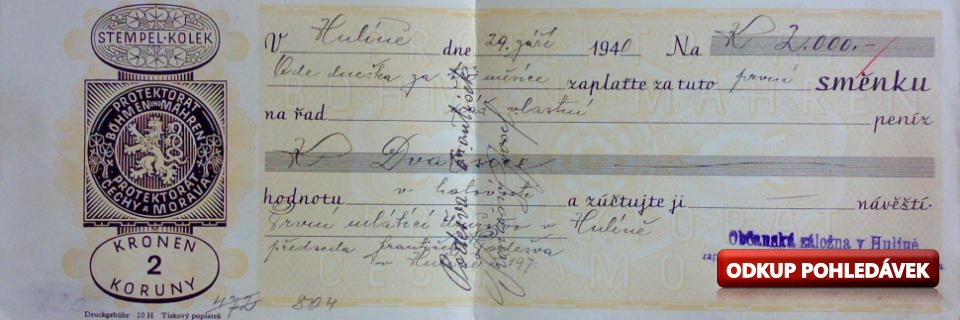 STEMPEL·KOLEK
PROTEKTORAT
BÖHMEN UND MÄHREN
PROTEKTORAT
ČECHY A MORAVA
KRONEN
2
KORUNY
Druckgebühr 10 H Tiskový poplatek
472 804
V Hulíně dne 29. září 1940 Na K 2.000.-
Ode dneška za měsíce zaplaťte za tuto první směnku
na řad vlastní peníz
K Dvatisíce
hodnotu v hotovosti a zúčtujte ji návěští.
První mlátící družstvo v Hulíně
předseda František
v Hulíně 197
Občanská záložna v Hulíně
ODKUP POHLEDÁVEK